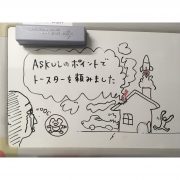 ASKULのポイントで
トースターを頼みました